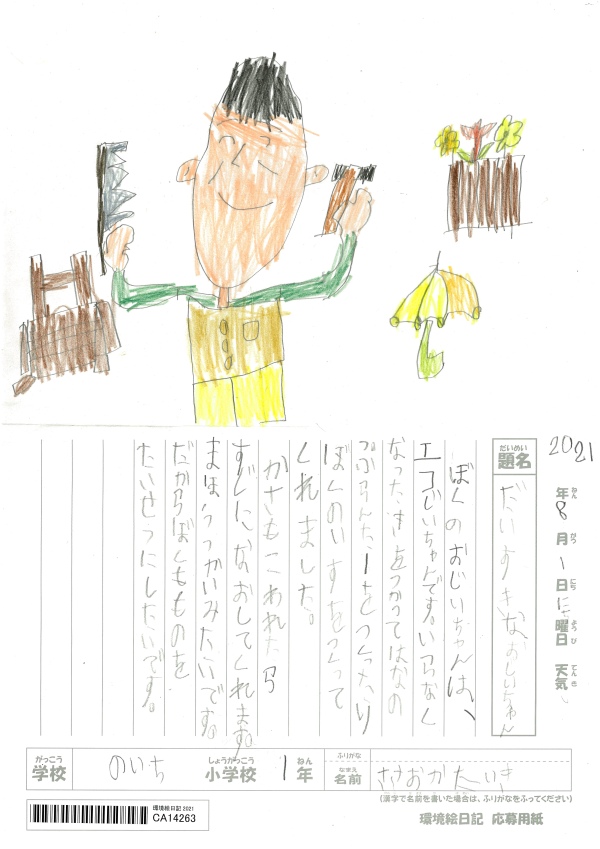 2021年8月1日にち曜日 天気
ねん がつ にち ようび てんき
だいめい
題名
だいすきなおじいちゃん
ぼくのおじいちゃんは、
エコじいちゃんです。いらなく
なった、木をつかってはなの
ぷらんたーをつくったり
ぼくのいすをつくって
くれました。
かさもこわれたら
すぐに、なおしてくれます。
まほうつかいみたいです。
だからぼくもものを
たいせつにしたいです。
がっこう
学校
のいち
しょうがっこう
小学校
1
ねん
年
ふりがな
なまえ
名前
ささおかたいき
(漢字で名前を書いた場合は、ふりがなをふってください)
環境絵日記 2021
CA14263
環境絵日記 応募用紙